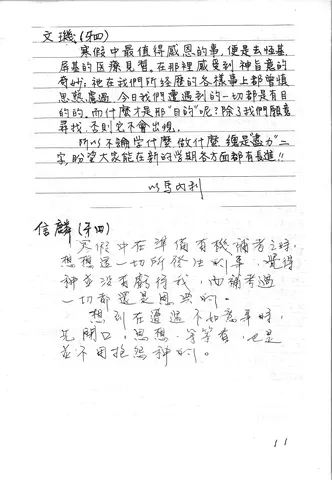 文璣(牙四)
寒假中最值得感恩的事,便是去恆基、
屏基的医療見習。在那裡感受到 神旨意的
奇妙:祂在我們所經歷的各樣事上都曾慎
思熟慮過,今日我們遭遇到的一切都是有目
的的。而什麼才是那"目的"呢?除了我們願意
尋找,否則它不會出現。
所以不論學什麼,做什麼,總是"盡力"二
字,盼望大家能在新的學期各方面都有長進!!
以馬內利
信麟(牙四)
寒假中在準備有機補考之時,
想想這一切所發生的事,覺得
神並沒有虧待我,內補考過
一切都還是恩典的。
想到在遭遇不如意事時,
先開口,思想,等等看,也是
並不用抱怨神的。
11